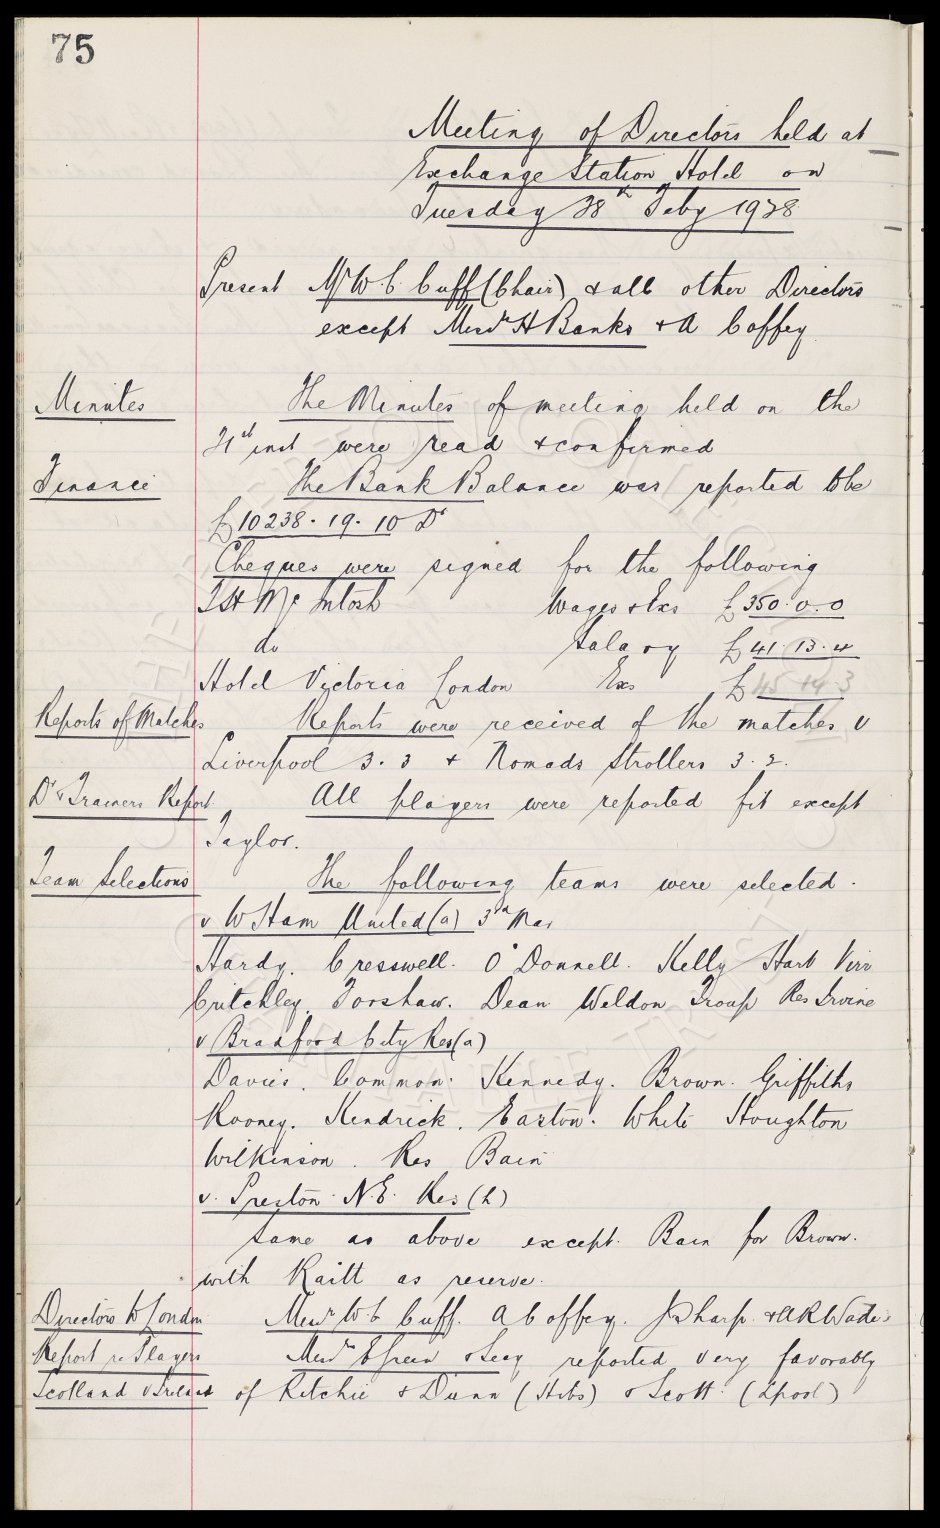 75
Meeting of Directors held at
Exchange Station Hotel on
Tuesday 28th Feby 1928
Present Mr W. C. Cuff (Chair) & all other Directors
except Messrs H Banks & A Coffey
Minutes The Minutes of meeting held on the
21st inst were read & confirmed
Finance The Bank Balance was reported to be
£10238. 19. 10 Dr
Cheques were signed for the following
T H McIntosh Wages & Exs £350. 0. 0
do Salary £41. 13. 4
Hotel Victoria London Exs £45 14 3
Reports of Matches Reports were received of the matches v
Liverpool 3. 3 & Nomads Strollers 3. 2.
Dr & Trainers Report All players were reported fit except
Taylor.
Team Selections The following teams were selected.
v W Ham United (a) 3rd Mar
Hardy. Cresswell. O'Donnell. Kelly Hart Virr
Critchley. Forshaw. Dean Weldon Troup Res Irvine
v Bradford City Res (a)
Davies. Common. Kennedy. Brown. Griffiths
Rooney. Kendrick. Easton. White Houghton
Wilkinson. Res Bain
v. Preston. N.E. Res (h)
Same as above except. Bain for Brown.
with Raitt as reserve.
Directors to London Messrs W C Cuff. A Coffey. J Sharp. & A R Wade.
Report re Players Messrs E Green & Secy reported very favorably
Scotland v Ireland of Ritchie & Dunn (Hibs) & Scott. (Lpool)